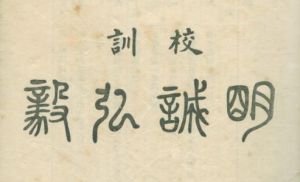 校訓
明誠弘毅